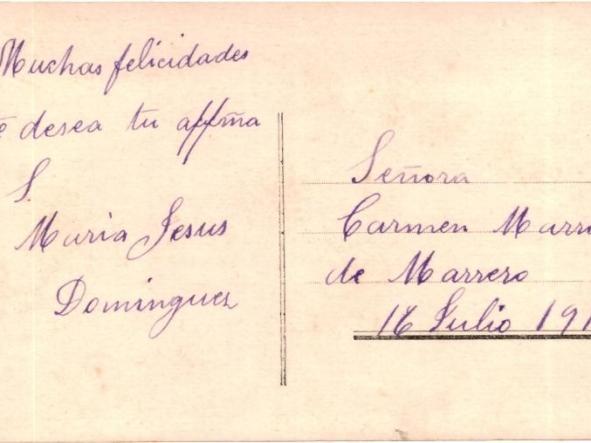 Muchas felicidades
te desea tu affma
S.
Maria Jesus
Dominguez
Señora
Carmen Marr
de Marrero
16 Julio 191